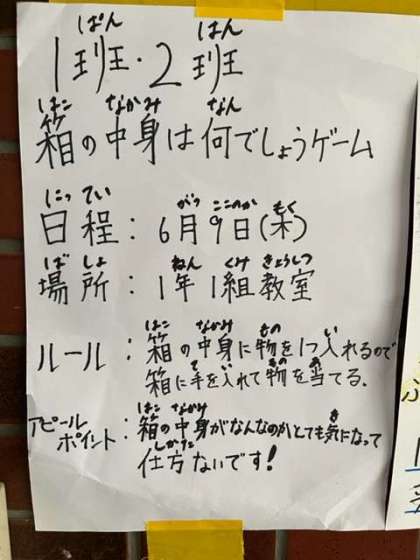 1班・2班
箱の中身は何でしょうゲーム
日程：6月9日(木)
場所：1年1組教室
ルール：箱の中身に物を1つ入れるので
箱に手を入れて物を当てる.
アピールポイント：箱の中身がなんなのかとても気になって
仕方ないです!